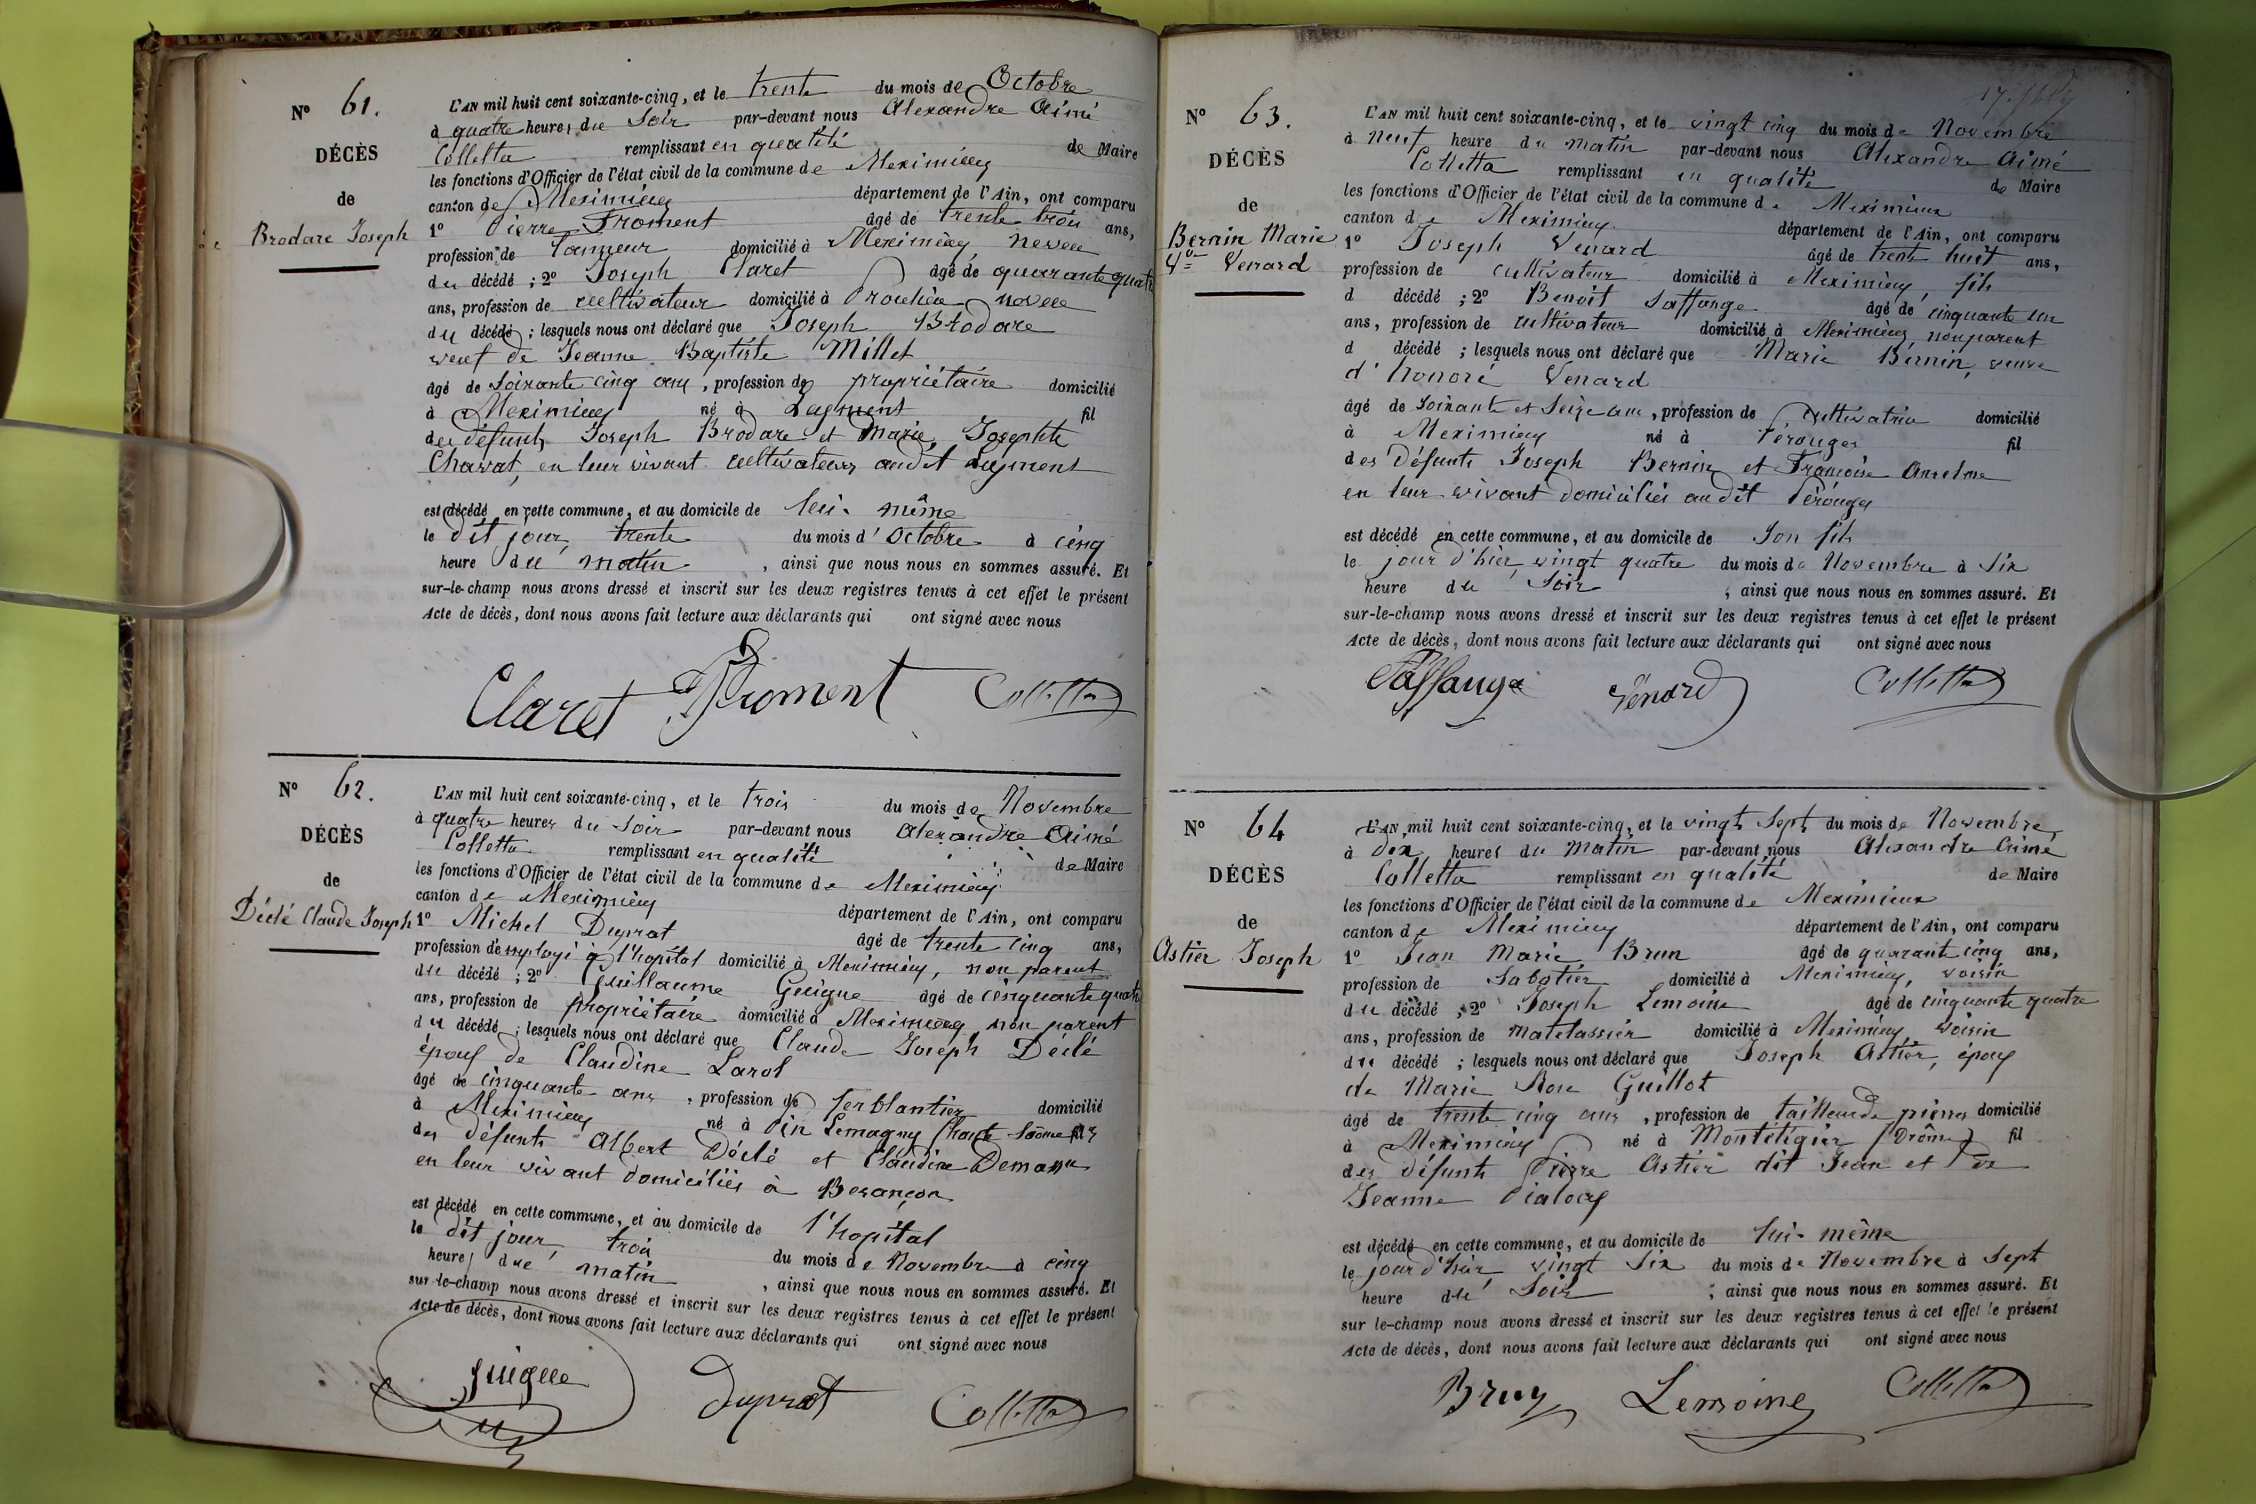 N° 61.
DÉCÈS
de
Brodare Joseph
L'AN mil huit cent soixante-cinq, et le trente du mois de Octobre
à quatre heures du Soir par-devant nous Alexandre Aimé
Colletta remplissant en qualité de Maire
les fonctions d'Officier de l'état civil de la commune de Meximieux
canton de Meximieux département de l'Ain, ont comparu
1° Pierre Froment âgé de trente trois ans,
profession de Tanneur domicilié à Meximieux neveu
du décédé ; 2° Joseph Claret âgé de quarante quatre
ans, profession de cultivateur domicilié à neveu
du décédé ; lesquels nous ont déclaré que Joseph Brodare
veuf de Jeanne Baptiste Millet
âgé de soixante cinq ans, profession de propriétaire domicilié
à Meximieux né à Lagment fil
des défunts Joseph Brodare et Marie Josephte
Charvat, en leur vivant cultivateurs audit Lagment
est décédé en cette commune, et au domicile de lui-même
le dit jour, trente du mois d'Octobre à cinq
heure du matin, ainsi que nous nous en sommes assuré. Et
sur-le-champ nous avons dressé et inscrit sur les deux registres tenus à cet effet le présent
Acte de décès, dont nous avons fait lecture aux déclarants qui ont signé avec nous
Claret Froment Colletta
N° 62.
DÉCÈS
de
Déclé Claude Joseph
L'AN mil huit cent soixante-cinq, et le trois du mois de Novembre
à quatre heures du Soir par-devant nous Alexandre Aimé
Colletta remplissant en qualité de Maire
les fonctions d'Officier de l'état civil de la commune de Meximieux
canton de Meximieux département de l'Ain, ont comparu
1° Michel Duprat âgé de trente cinq ans,
profession d'employé à l'hopital domicilié à Meximieux, non parent
du décédé ; 2° Guillaume Guigue âgé de cinquante quatre
ans, profession de propriétaire domicilié à Meximieux, non parent
du décédé ; lesquels nous ont déclaré que Claude Joseph Déclé
époux de Claudine Larol
âgé de cinquante ans, profession de ferblantier domicilié
à Meximieux né à Pin Lemagny (haute Saône fils
des défunts Albert Déclé et Claudine
en leur vivant domiciliés à Besançon
est décédé en cette commune, et au domicile de l'hopital
le dit jour, trois du mois de Novembre à cinq
heure du matin, ainsi que nous nous en sommes assuré. Et
sur-le-champ nous avons dressé et inscrit sur les deux registres tenus à cet effet le présent
Acte de décès, dont nous avons fait lecture aux déclarants qui ont signé avec nous
guigue Duprat Colletta
N° 63.
DÉCÈS
de
Bernin Marie
Vve Venard
L'AN mil huit cent soixante-cinq, et le vingt cinq du mois de Novembre
à neuf heure du matin par-devant nous Alexandre Aimé
Colletta remplissant en qualité de Maire
les fonctions d'Officier de l'état civil de la commune de Meximieux
canton de Meximieux département de l'Ain, ont comparu
1° Joseph Venard âgé de trente huit ans,
profession de cultivateur domicilié à Meximieux, fils
d décédé ; 2° Benoit Saffange âgé de cinquante un
ans, profession de cultivateur domicilié à Meximieux, non parent
d décédé ; lesquels nous ont déclaré que Marie Bernin, veuve
d'honoré Venard
âgé de soixante et Seize ans, profession de cultivatrice domicilié
à Meximieux né à Pérouges fil
des défunts Joseph Bernin et Françoise Anselme
en leur vivant domiciliés audit Pérouges
est décédé en cette commune, et au domicile de Son fils
le jour d'hier, vingt quatre du mois de Novembre à Six
heure du Soir, ainsi que nous nous en sommes assuré. Et
sur-le-champ nous avons dressé et inscrit sur les deux registres tenus à cet effet le présent
Acte de décès, dont nous avons fait lecture aux déclarants qui ont signé avec nous
Saffange Venard Colletta
N° 64
DÉCÈS
de
Astier Joseph
L'AN mil huit cent soixante-cinq, et le vingt Sept du mois de Novembre,
à dix heures du Matin par-devant nous Alexandre Aimé
Colletta remplissant en qualité de Maire
les fonctions d'Officier de l'état civil de la commune de Meximieux
canton de Meximieux département de l'Ain, ont comparu
1° Jean Marie Brun âgé de quarante cinq ans,
profession de Sabotier domicilié à Meximieux, voisin
du décédé ; 2° Joseph Lemoine âgé de cinquante quatre
ans, profession de Matelassier domicilié à Meximieux, voisin
du décédé ; lesquels nous ont déclaré que Joseph Astier, époux
de Marie Rose Guillot
âgé de trente cinq ans, profession de tailleur de pierres domicilié
à Meximieux né à Montéligier (Drôme) fil
des défunts Pierre Astier dit Jean et de
Jeanne
est décédé en cette commune, et au domicile de lui-même
le jour d'hier vingt Six du mois de Novembre à Sept
heure du Soir ; ainsi que nous nous en sommes assuré. Et
sur le-champ nous avons dressé et inscrit sur les deux registres tenus à cet effet le présent
Acte de décès, dont nous avons fait lecture aux déclarants qui ont signé avec nous
Bruy Lemoine Colletta